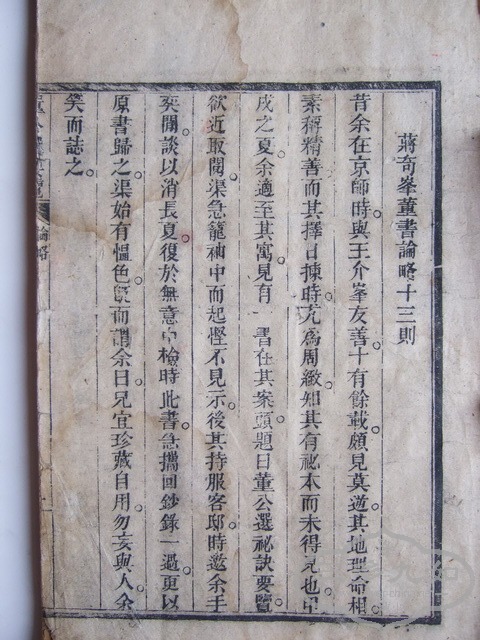 蔣奇峯董書論略十三則
昔余在京師時與王介峯友善十有餘載頗見莫逆其地理命相
素稱精善而其擇日揀時尤為周緻知其有祕本而未得見也甲
戌之夏余適至其寓見有一書在其案頭題曰董公選祕訣要覽
欲近取閱渠急籠袖中而起慳不見示後其持服客邸時邀余手
奕閒談以消長夏復於無意中檢時此書急攜回鈔錄一過更以
原書歸之渠始有慍色旣而謂余曰兄宜珍藏自用勿妄與人余
笑而誌之
論略